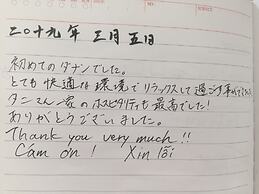 二〇十九年 三月五日
初めてのダナンでした。
とても快適な環境でリラックスして過ごす事ができました
タンさん家のホスピタリティも最高でした!
ありがとうございました。
Thank you very much!!
Cám ơn! Xin lỗi